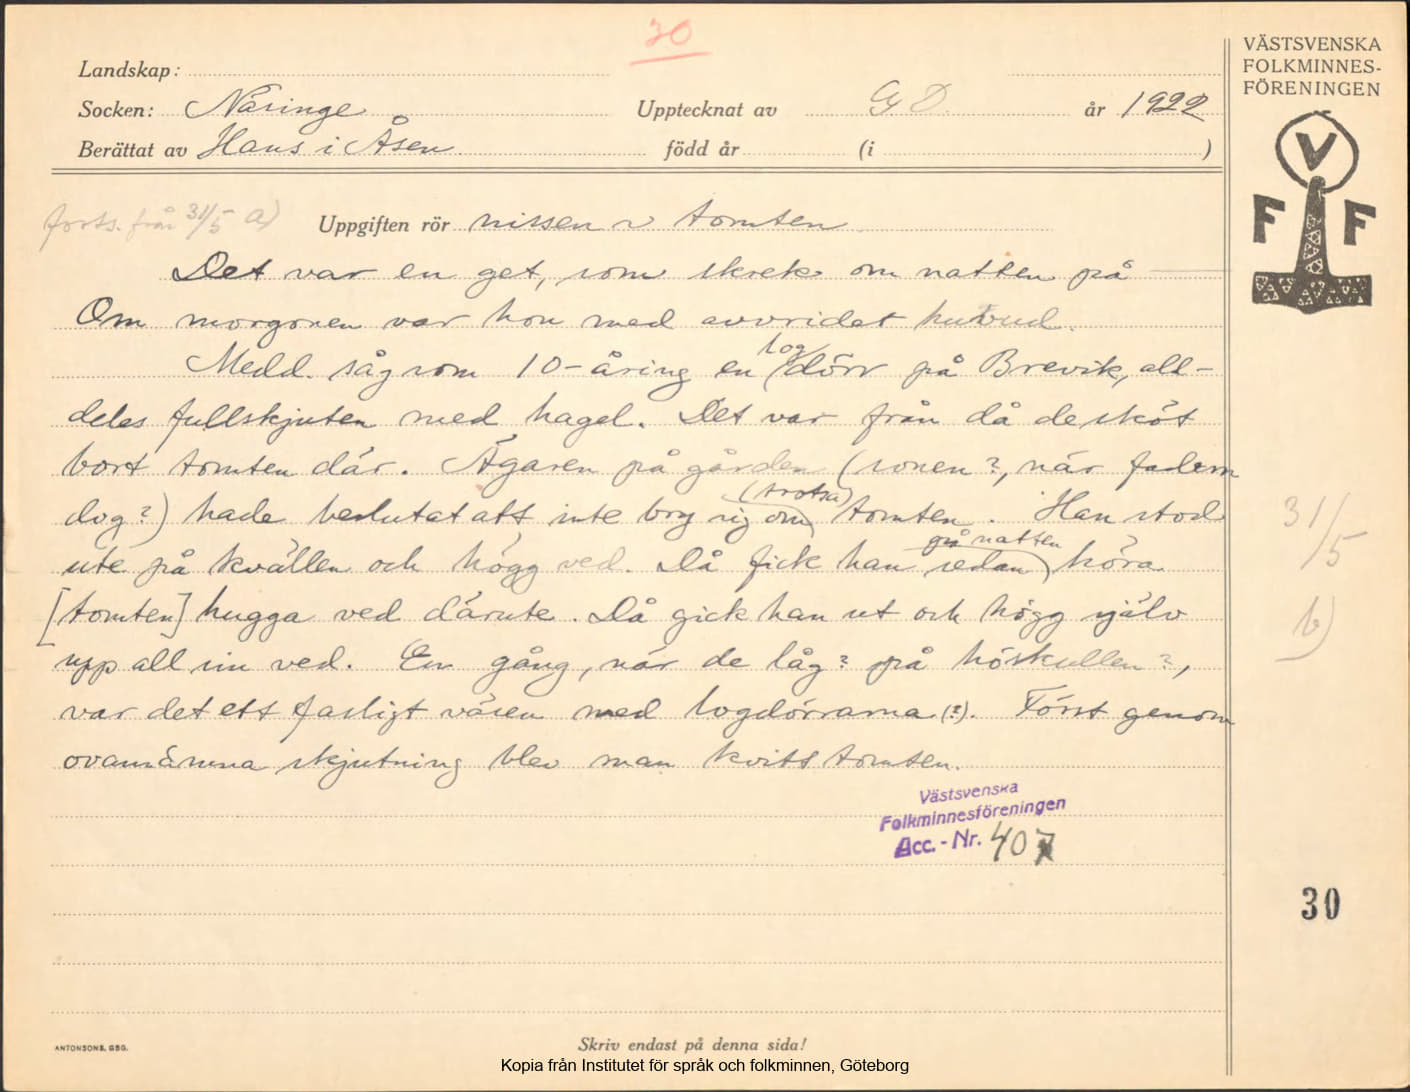 30
VÄSTSVENSKA
FOLKMINNES-
FÖRENINGEN
Landskap:
Socken: Naringe Upptecknat av G D. år 1922
Berättat av Hans i Åsen född år (i )
V
F F
forts. från 31/5 a) Uppgiften rör nissen o tomten
Det var en get, som skrek om natten på
Om morgonen var hon med avvridet huvud.
log
Medd. såg som 10-åring en dörr på Brevik, all-
deles fullskjuten med hagel. Det var från då de sköt
bort tomten där. Ägaren på gården (sonen?, när fadern
(trotsa)
dog?) hade beslutat att inte bry sig om tomten. Han stod
på natten
ute på kvällen och högg ved. Då fick han sedan höra
[tomten] hugga ved därute. Då gick han ut och högg själv
upp all sin ved. En gång, när de låg? på höskullen?,
var det ett farligt väsen med logdörrarna (?). Först genom
ovannämna skjutning blev man kvitt tomten.
31/5
b)
Västsvenska
Folkminnesföreningen
Acc.-Nr. 407
30
ANTONSONS, GBG.
Skriv endast på denna sida!
Kopia från Institutet för språk och folkminnen, Göteborg